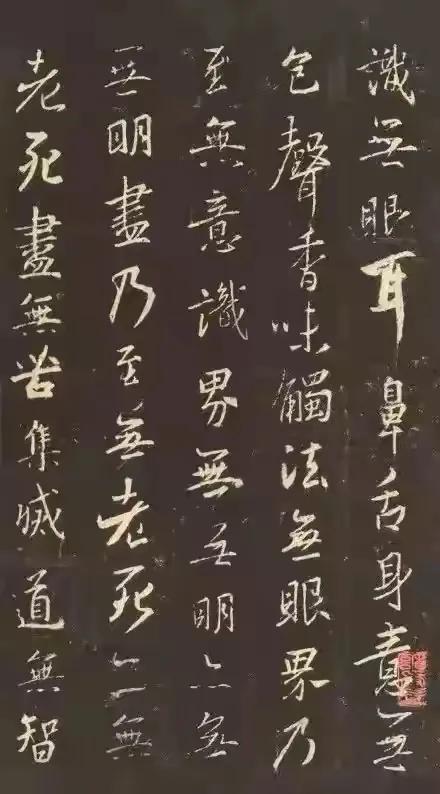 識無眼耳鼻舌身意无
色聲香味觸法無眼界乃
至無意識界無无明亦無
無明盡乃至無老死亦無
老死盡無苦集滅道無智